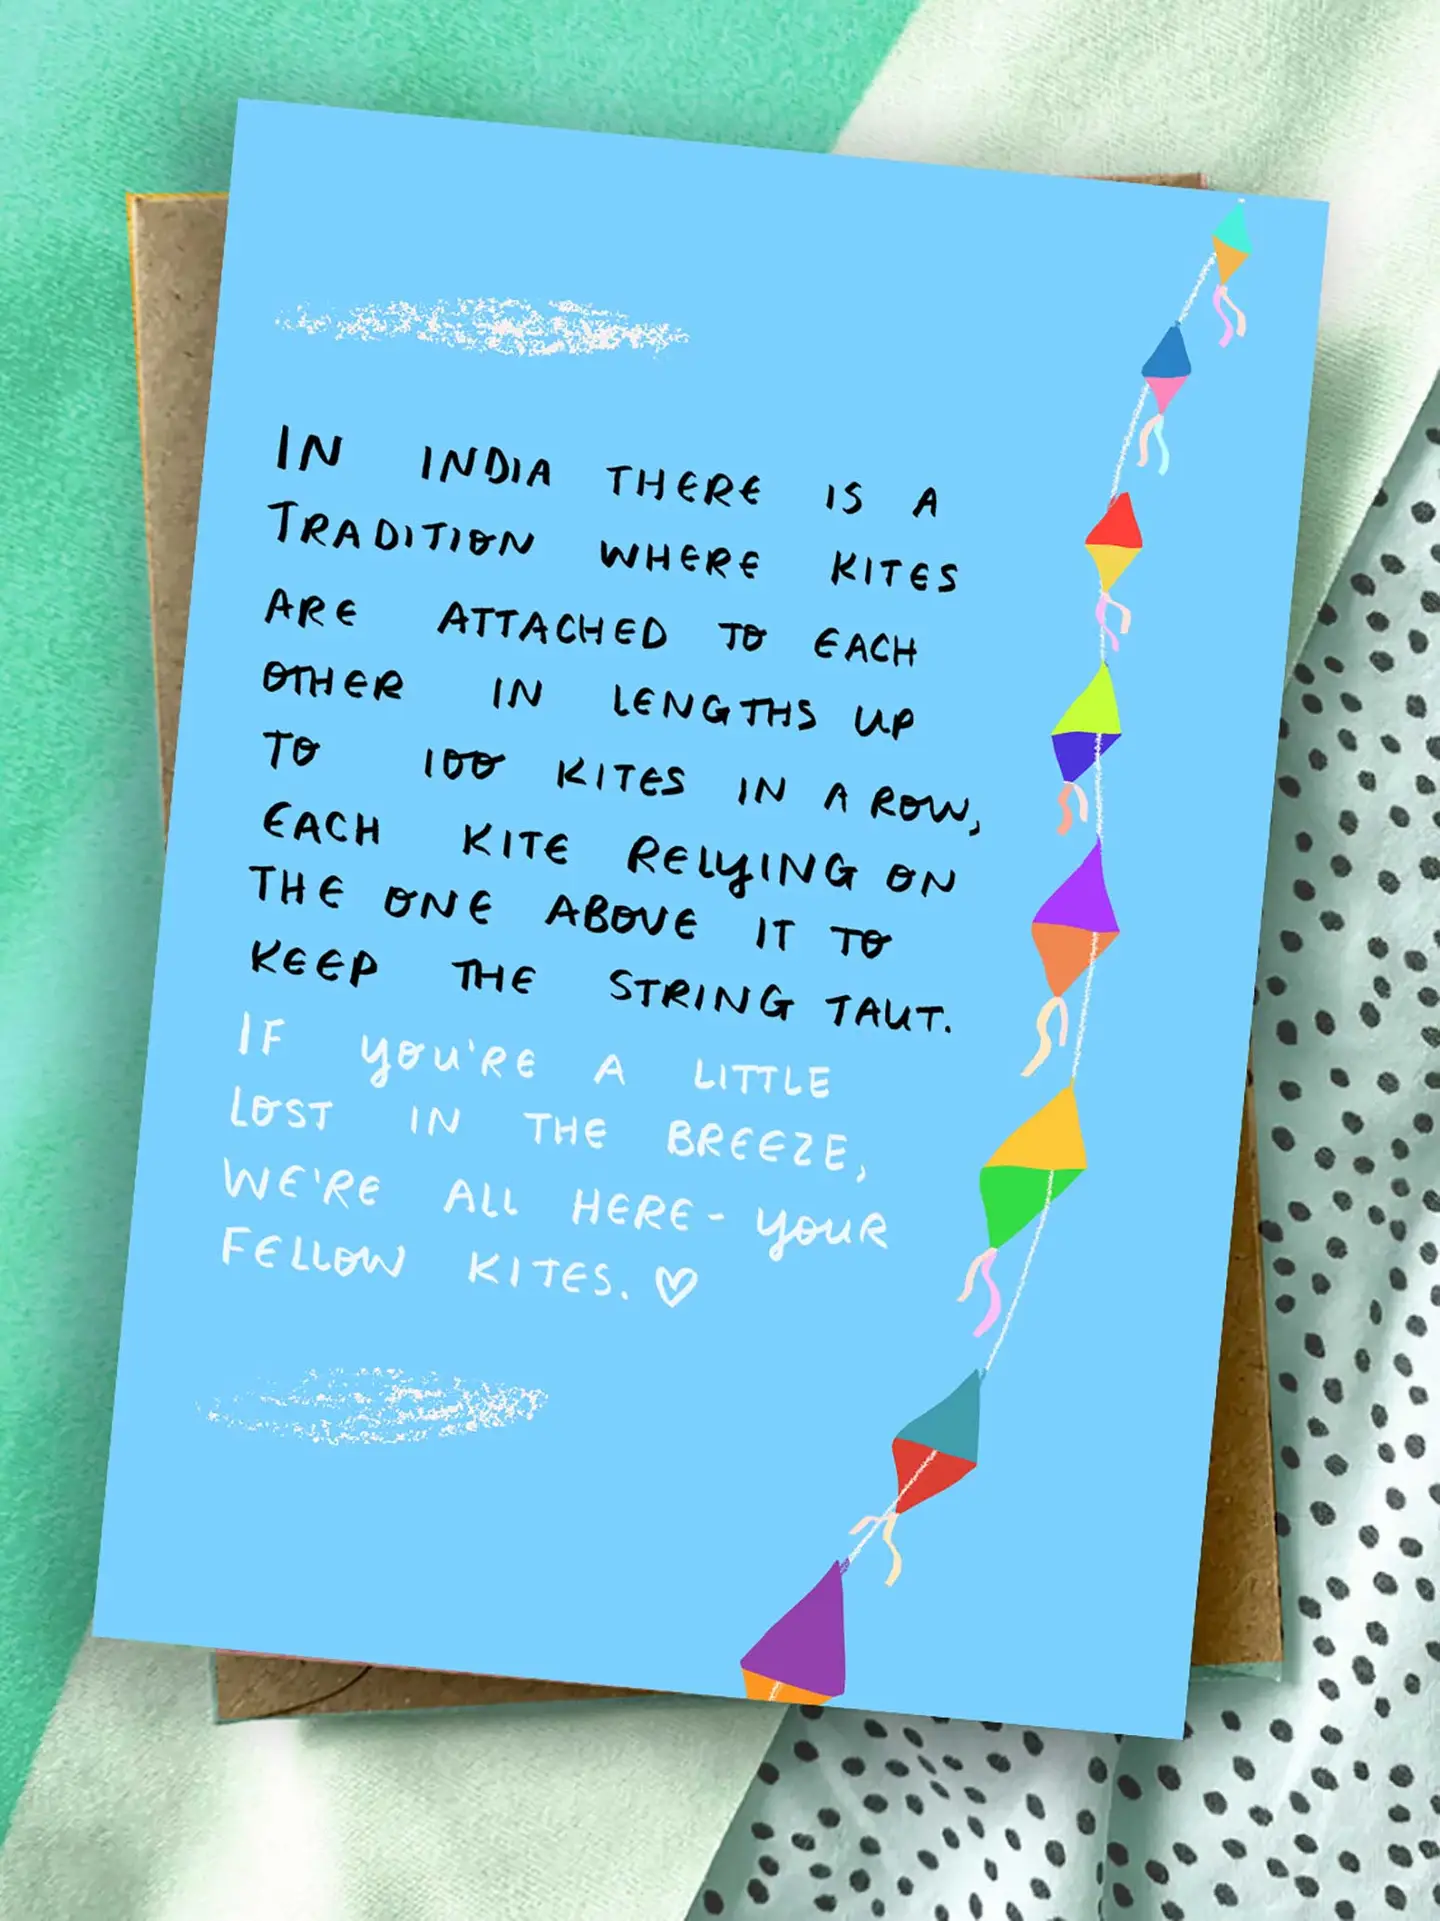 IN INDIA THERE IS A
TRADITION WHERE KITES
ARE ATTACHED TO EACH
OTHER IN LENGTHS UP
TO 100 KITES IN A ROW,
EACH KITE RELYING ON
THE ONE ABOVE IT TO
KEEP THE STRING TAUT.
IF YOU'RE A LITTLE
LOST IN THE BREEZE,
WE'RE ALL HERE - YOUR
FELLOW KITES. ♡